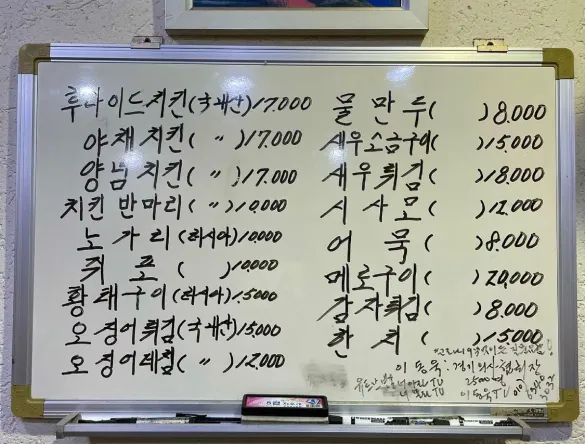 후라이드치킨(국내산)17.000
야채치킨( 〃 )17.000
양념치킨( 〃 )17.000
치킨 반마리( 〃 )10.000
노가리(러시아)10.000
쥐포( )10.000
황태구이(러시아)15000
오징어튀김(국내산)15000
오징어데침( 〃 )12.000
물만두( )8.000
새우소금구이( )15.000
새우튀김( )18.000
시사모( )12.000
어묵( )8.000
메로구이( )20,000
감자튀김( )8.000
한치( )15000
이동욱: 경기의사
2500명
이동욱TV